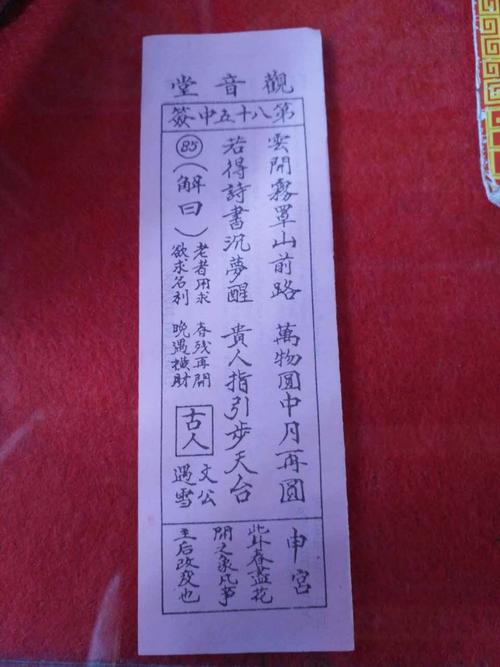 觀音堂
第八十五中簽
雲開霧罩山前路
萬物圓中月再圓
若得詩書沉夢醒
貴人指引步天台
85
(解曰)
老者用求
欲求名利
春残再開
晚遇横財
古人
文公
遇雪
申宮
此卦春盡花
開之象凡事
主后改变也